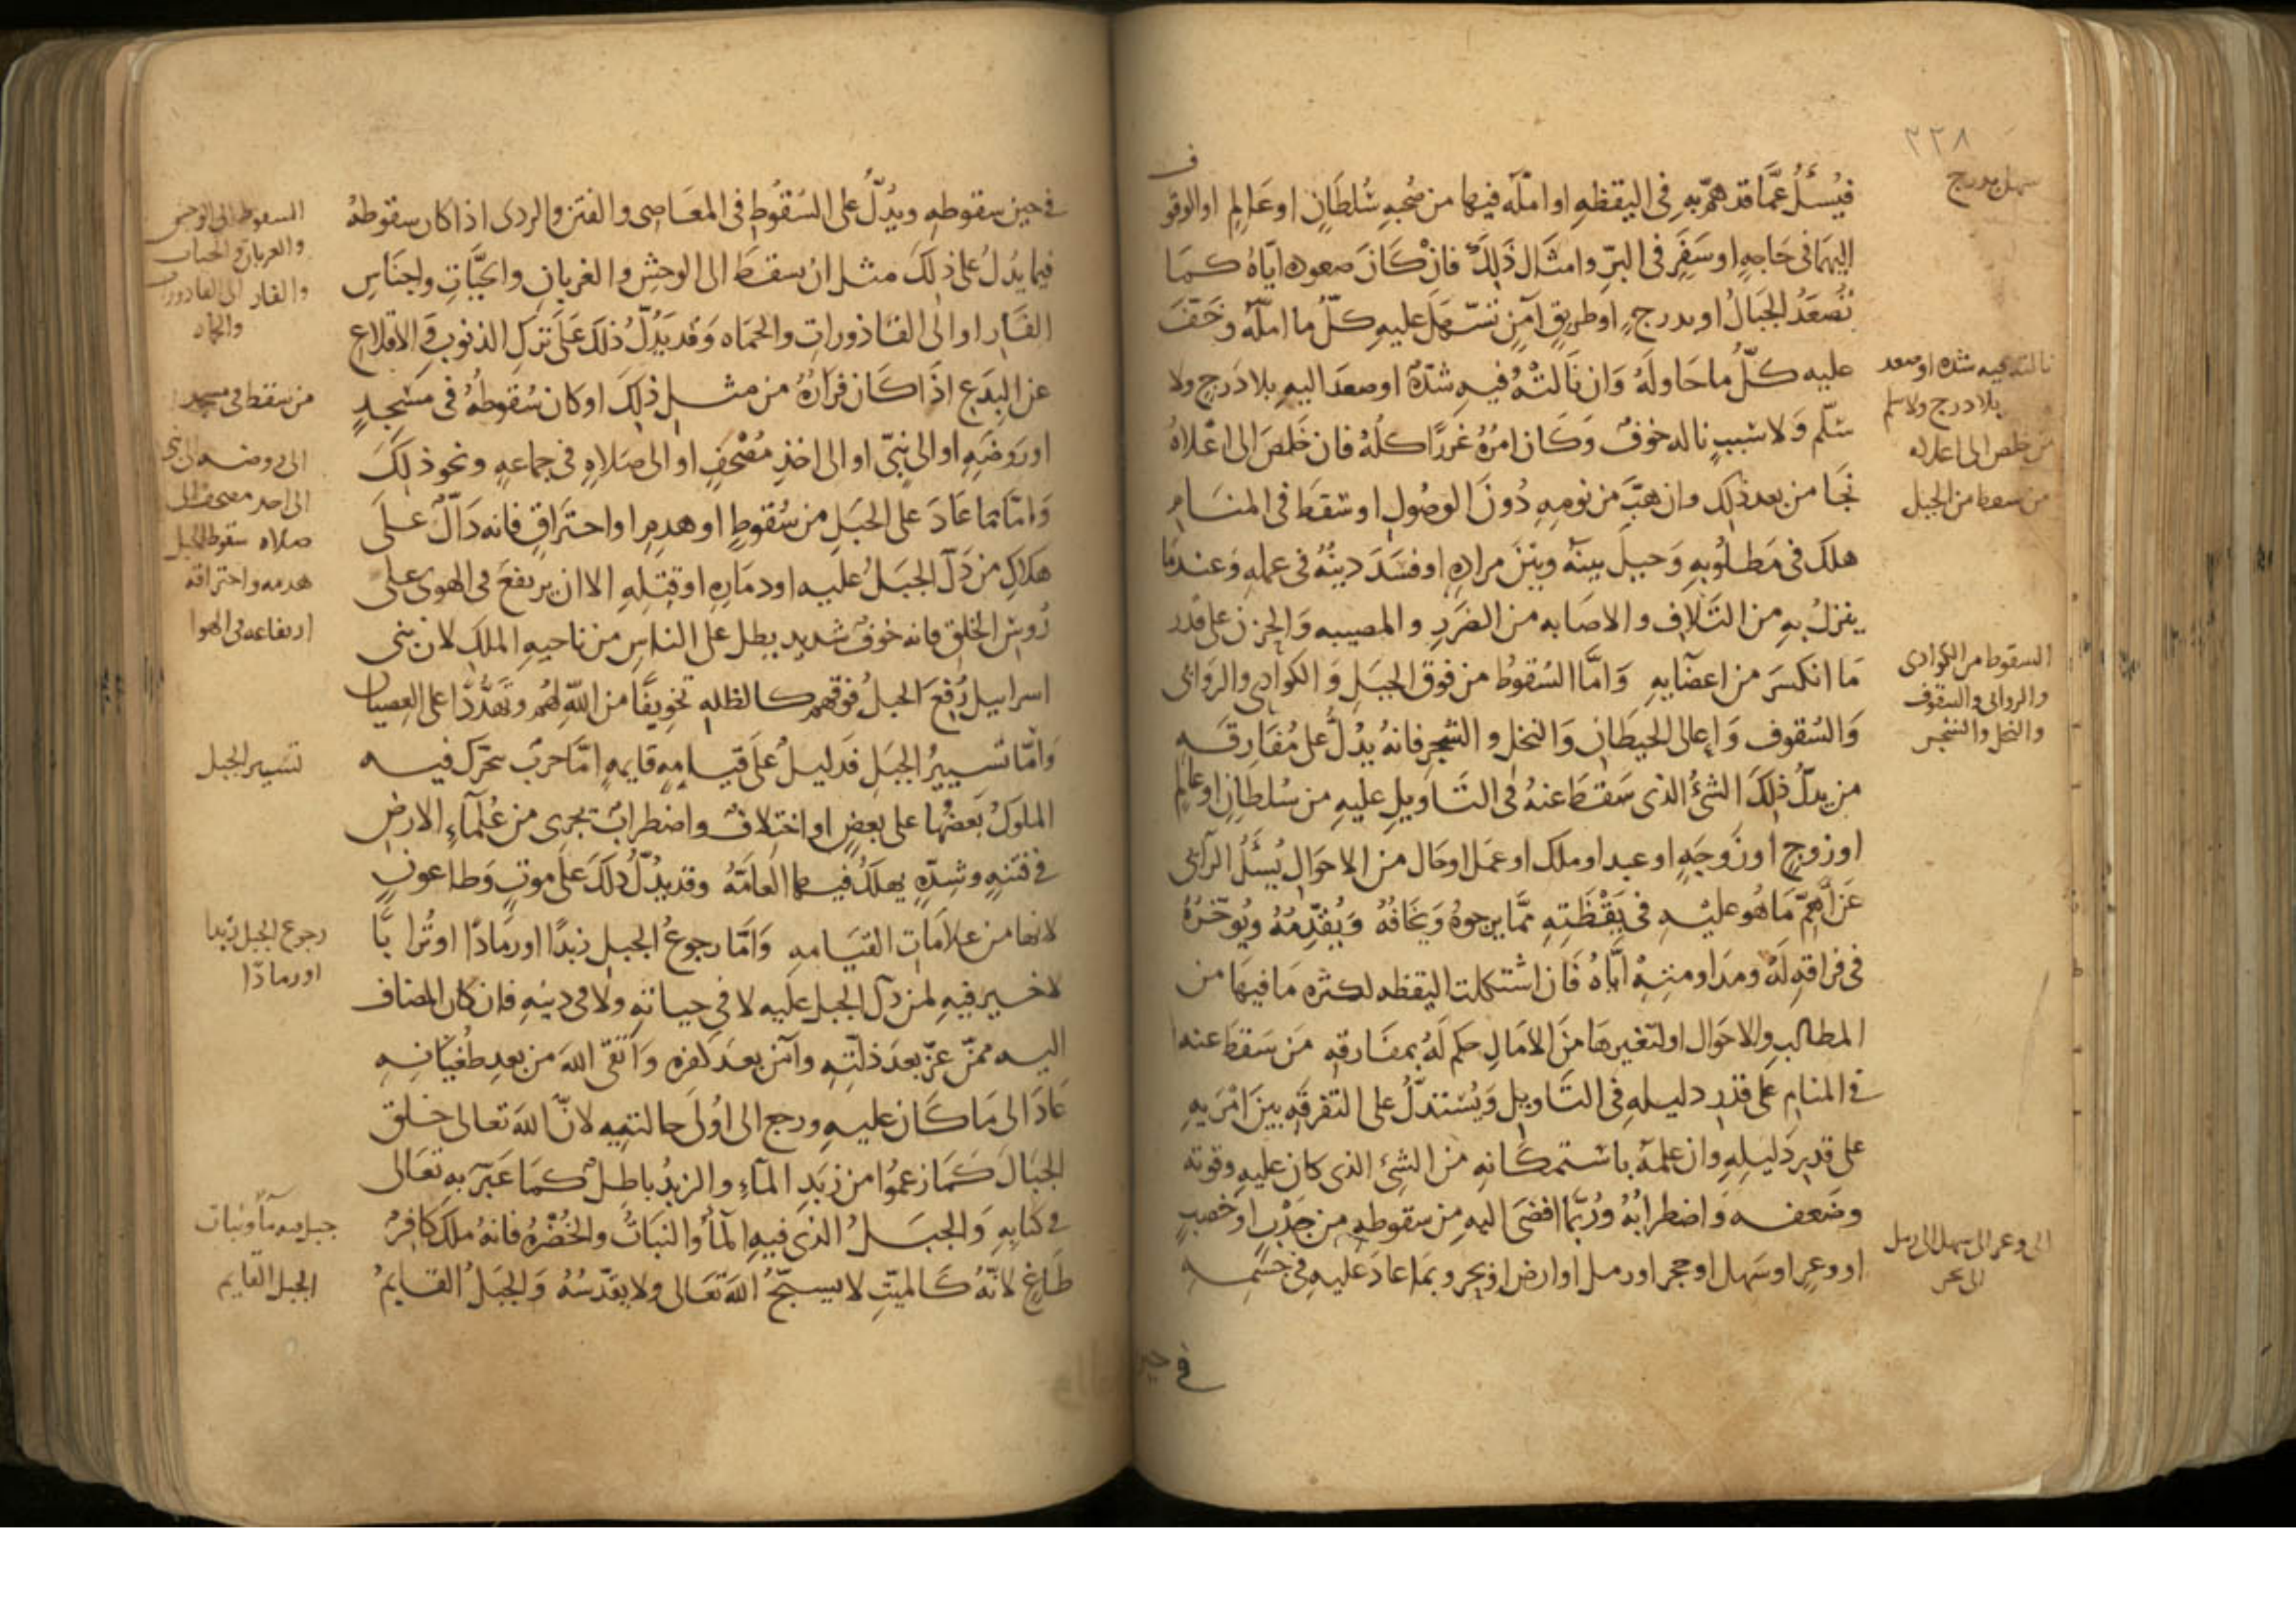 ٢٢٨
سهل بدرج
فيُسْئَلُ عمَّا قد همّ بهِ فى اليقظهِ او امّله فيها من صُحبهِ سُلطَانٍ او عَالِمٍ او الوقوف
اليهمَا فى حَاجهٍ او سَفَرٍ فى البرّ وامثَالِ ذَلِكَ فانْ كَانَ صعوده ايّاهُ كمَا
تُصعَدُ الجبَالُ او بدرجٍ او طريقٍ آمنٍ تسّهلَ عليهِ كلّ ما امّله وخَفّ
عليه كلّ ما حَاولَهُ وَان نَالتْهُ فيهِ شدّةٌ او صعدَ اليهِ بلا دَرجٍ ولا
سُلّم وَلا سَببٍ ناله خوفٌ وَكَان امرُهُ غررًا كلّهُ فان خَلصَ الى اعْلاهُ
نجَا من بعد ذلك وان هبَّ من نومِهِ دُونَ الوصُولِ او سَقطَ فى المنَامِ
هلكَ فى مَطلُوبهِ وَحِيلَ بينَهُ وبَيْنَ مرادِهِ او فسَدَ دينُهُ فى عملهِ وَعندمَا
ينزلُ بهِ من التّلافِ والاصَابه من الضرَرِ والمصيبه وَالحزن على قدر
مَا انكسَرَ من اعضَايهِ وَامَّا السُقوطُ من فوق الجبَلِ وَالكوادى والروَابى
وَالسُقوف وَاعالى الحيطَان وَالنخل والشجرِ فانهُ يدُلُّ على مُفَارقَه
من يدلّ ذلكَ الشئُ الذى سَقطَ عنهُ فى التّاويلِ عليهِ من سُلطانٍ او عالِمٍ
او زوجٍ او زَوجَهٍ او عبد او ملك او عمَل او حَال من الاحوَالِ يُسئَلُ الرآى
عَن اهَمّ مَا هُو عليْهِ فى يَقْظَتهِ ممَّا يرجوهُ وَيخَافُهُ وَيُقدّمُهُ ويُوخّرُهُ
فى فراقهِ لَهُ ومدَاومتِهْ ايّاهُ فَان اشْتكلت اليقظه لكثرهِ مَا فيهَا من
المطالبِ والاحوَال او لتغيرهَا منَ الامَالِ حكم لَهُ بمفَارقهِ مَن سَقطَ عنه
فى المنامِ على قدرِ دليلهِ فى التّاويلِ وَيُسْتدَلُّ على التفرقَه بينَ امْرَيهِ
على قدرِ دَليلِهِ وان علمهُ باستمكَانهِ من الشئ الذى كان عليهِ وقوته
وضَعفه وَاضطرابهُ ورُبّما افضىَ اليهِ من سقوطهِ من جَدْبٍ او خصبٍ
او وعرٍ او سَهل او حجر او رمل او ارض او بحر وبمَا عادَ عليهِ فى جسْمهِ
فى حين
نالته فيه شده او صعد
بلا درج ولا سلم
من خلص الى اعلاه
من سقط من الجبل
السقوط من الكوادى
والروابى والسقوف
والنخل والشجر
الى وعر الى سهل الى رمل
الى بحر
فى حين سقوطهِ ويدُلّ على السُقوُطِ فى المعَاصى والفتن والردى اذا كان سقوطهُ
فيما يدُلُ على ذلكَ مثل ان سقَطَ الى الوحش والغربانِ والحيَّاتِ واجنَاسِ
الفَارِ او الى القَاذوراتِ والحمَاه وَقد يَدُلّ ذلكَ عَلَى تركِ الذنوب وَالاقلاعِ
عن البِدَع اذَا كَان فرَارُهُ من مثل ذلِكَ او كان سُقوطهُ فى مَسْجدٍ
او رَوضَهٍ او الى نبيّ او الى اخذِ مُصْحَفٍ او الى صَلاهٍ فى جماعهٍ ونحو ذلكَ
وَامّا مَا عَادَ على الجبَلِ من سُقوطٍ او هدمٍ او احتراقٍ فانه دَالّ علَى
هلاكِ من دَلّ الجبَلُ عليه او دمَارهِ او قتلِهِ الا ان يرتفعَ فى الهوى على
رُوسِ الخلقِ فانه خوفٌ شديد يطل على الناسِ من ناحيهِ الملك لان بنى
اسراييل رُفعَ الجبلُ فوقهُم كالظله تخويفًا من اللّهِ لهُم وتهَدُّدًا على العِصيان
وَامّا تسييرُ الجبَلِ فدَليلٌ عَلَى قيامهِ قايمهٍ امّا حربٌ تتحرّك فيه
الملوكُ بَعضُها على بعضٍ او اختلافٌ واضطرابٌ تجرى من عُلمآءِ الارضِ
فى فتنهٍ وشدّهٍ يهلكُ فيها العَامّهُ وقد يدُلّ ذلكَ عَلَى موتٍ وَطاعونٍ
لانها من علامَاتِ القيَامهِ وَامَّا رجوعُ الجبلِ زبدًا او رمَادًا او تُرابًا
لا خير فيهِ لمن دلّ الجبل عليه لا فى حياتهِ ولا فى دينِهِ فان كان المضاف
اليه ممنّ عزّ بعدَ ذلّتهِ وآمَن بعدَ كفرهِ وَاتّقى اللهَ من بعدِ طُغْيَانهِ
عَادَ الى مَا كَان عليهِ ورجع الى اُولَى حالتيهِ لانّ اللهَ تعالى خلق
الجبَالَ كَمَا زعمُوا من زبَدِ المآءِ والزبدُ باطلٌ كمَا عَبّرَ بهِ تعَالى
فى كتابهِ وَالجبَلُ الذى فيهِ المآءُ وَالنبَاتُ والخُضْرهُ فانهُ ملكٌ كَافِرٌ
طَاغٍ لانّهُ كَالميّتِ لا يسبّحُ اللهَ تعَالى ولا يقدّسُهُ وَالجبَلُ القَايمُ
السقوط الى الوحش
والغربان والحيات
والفار الى القاذورات
والحماه
من سقط فى مسجد
الى روضه الى نبى
الى اخذ مصحف الى
صلاه سقوط الجبل
هدمه واحتراقه
ارتفاعه فى الهوا
تسيير الجبل
رجوع الجبل زبدا
او رمادًا
جبل فيه مآء ونبات
الجبل القايم